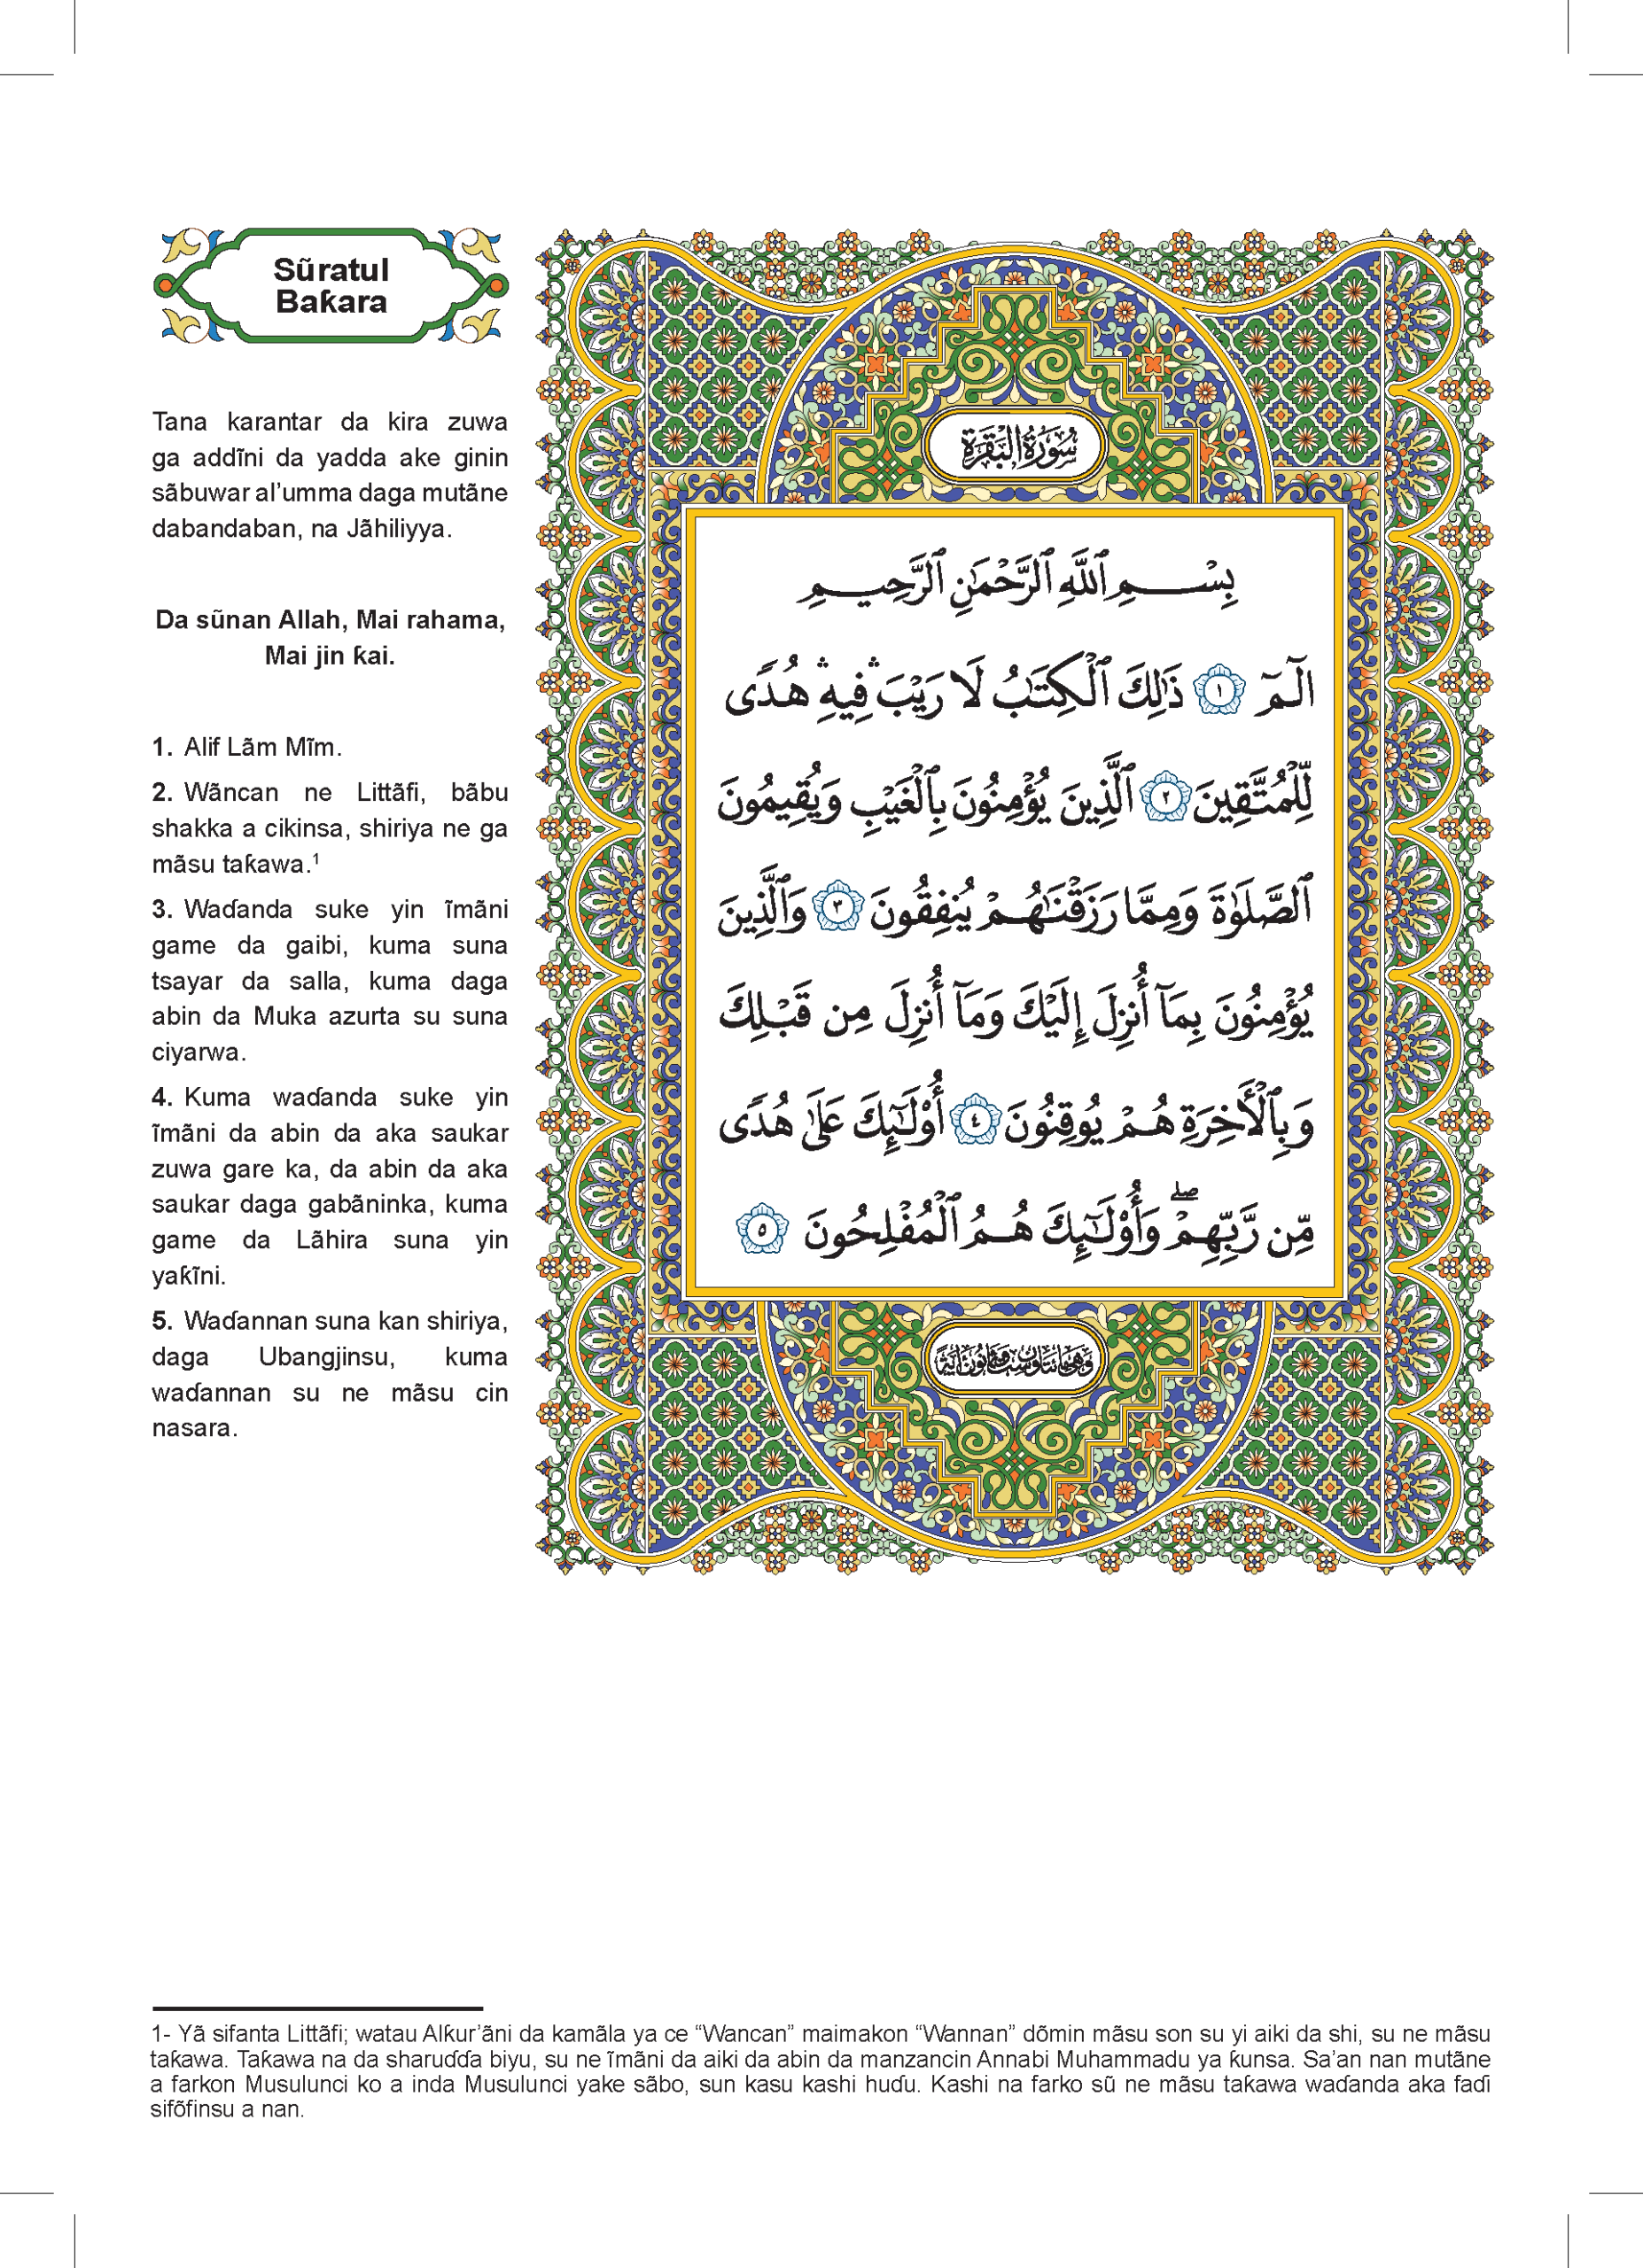 Sũratul
Baƙara
Tana karantar da kira zuwa
ga addĩni da yadda ake ginin
sãbuwar al’umma daga mutãne
dabandaban, na Jãhiliyya.
Da sũnan Allah, Mai rahama,
Mai jin ƙai.
1. Alif Lãm Mĩm.
2. Wãncan ne Littãfi, bãbu
shakka a cikinsa, shiriya ne ga
mãsu taƙawa.¹
3. Waɗanda suke yin ĩmãni
game da gaibi, kuma suna
tsayar da salla, kuma daga
abin da Muka azurta su suna
ciyarwa.
4. Kuma waɗanda suke yin
ĩmãni da abin da aka saukar
zuwa gare ka, da abin da aka
saukar daga gabãninka, kuma
game da Lãhira suna yin
yaƙĩni.
5. Waɗannan suna kan shiriya,
daga Ubangjinsu, kuma
waɗannan su ne mãsu cin
nasara.
سُورَةُ البَقَرَةِ
بِسْمِ ٱللَّهِ ٱلرَّحْمَٰنِ ٱلرَّحِيمِ
الٓمٓ ١ ذَٰلِكَ ٱلْكِتَٰبُ لَا رَيْبَ ۛ فِيهِ ۛ هُدًى
لِّلْمُتَّقِينَ ٢ ٱلَّذِينَ يُؤْمِنُونَ بِٱلْغَيْبِ وَيُقِيمُونَ
ٱلصَّلَوٰةَ وَمِمَّا رَزَقْنَٰهُمْ يُنفِقُونَ ٣ وَٱلَّذِينَ
يُؤْمِنُونَ بِمَآ أُنزِلَ إِلَيْكَ وَمَآ أُنزِلَ مِن قَبْلِكَ
وَبِٱلْأَخِرَةِ هُمْ يُوقِنُونَ ٤ أُو۟لَٰٓئِكَ عَلَىٰ هُدًى
مِّن رَّبِّهِمْ ۖ وَأُو۟لَٰٓئِكَ هُمُ ٱلْمُفْلِحُونَ ٥
وَهِيَ مِائَتَانِ وَسِتٌّ وَثَمَانُونَ آيَةً
1- Yã sifanta Littãfi; watau Alƙur’ãni da kamãla ya ce “Wancan” maimakon “Wannan” dõmin mãsu son su yi aiki da shi, su ne mãsu
taƙawa. Taƙawa na da sharuɗɗa biyu, su ne ĩmãni da aiki da abin da manzancin Annabi Muhammadu ya ƙunsa. Sa’an nan mutãne
a farkon Musulunci ko a inda Musulunci yake sãbo, sun kasu kashi huɗu. Kashi na farko sũ ne mãsu taƙawa waɗanda aka faɗi
sifõfinsu a nan.